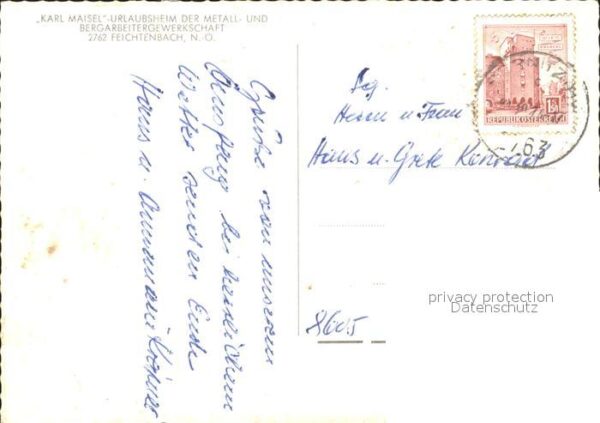 „KARL MAISEL"-URLAUBSHEIM DER METALL- UND
BERGARBEITERGEWERKSCHAFT
2762 FEICHTENBACH, N.-Ö.
Grüße von unserem
bei herrlichem
Wetter senden Euch
Hans u. Annemarie
Herrn u. Frau
Hans u. Grete
8605
REPUBLIK ÖSTERREICH
privacy protection
Datenschutz